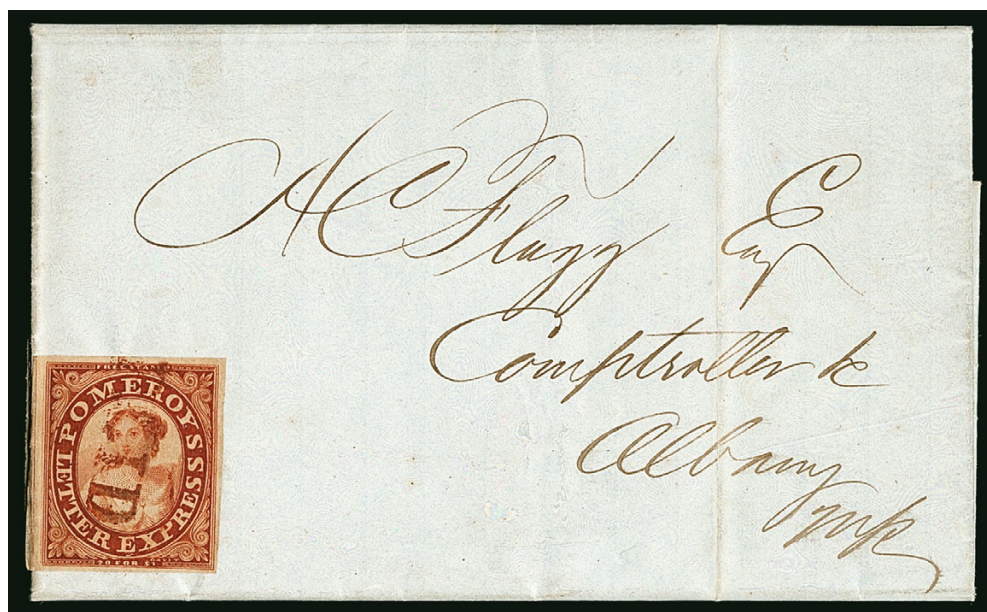 A C Flagg Esq
Comptroller &c
Albany
NYk
FREE STAMP
POMEROY'S LETTER EXPRESS.
20 FOR $1